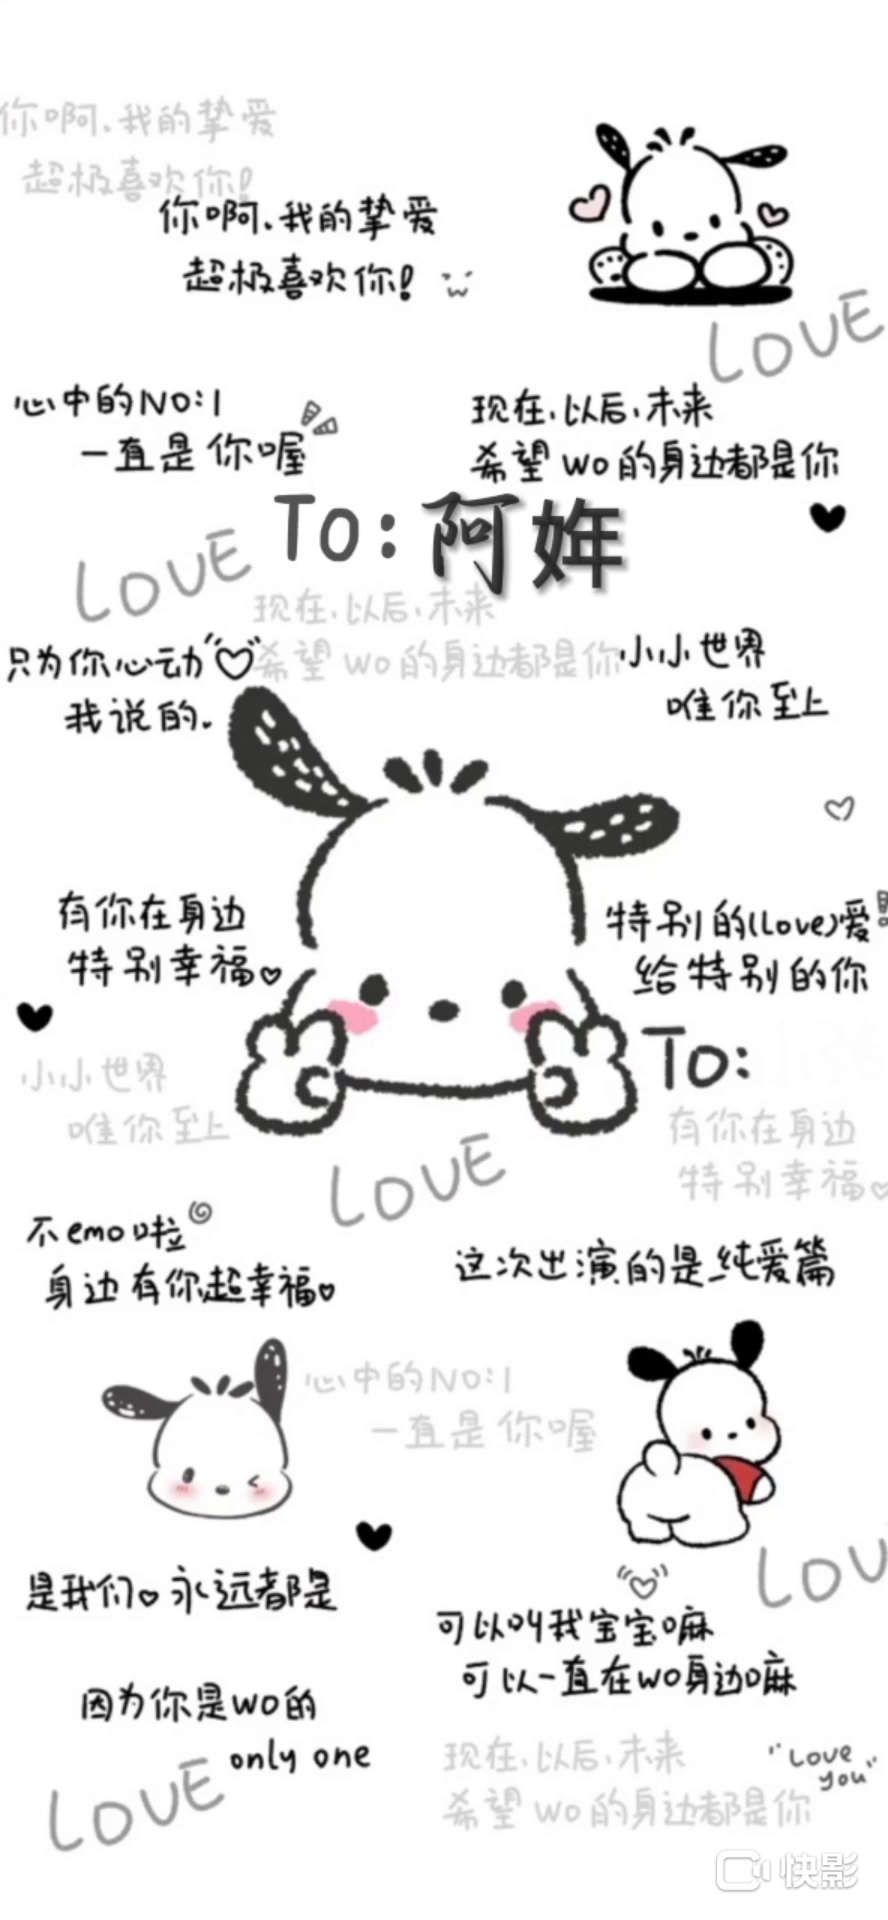 你啊、我的挚爱
超极喜欢你!
你啊、我的挚爱
超极喜欢你!
LOVE
心中的NO:1
一直是你喔
现在、以后、未来
希望wo的身边都是你
To:阿姩
LOVE
现在、以后、未来
希望wo的身边都是你
只为你心动
我说的.
小小世界
唯你至上
有你在身边
特别幸福
特别的(Love)爱
给特别的你
To:
小小世界
唯你至上
有你在身边
特别幸福
LOVE
不emo啦
身边有你超幸福
这次出演的是纯爱篇
心中的NO:1
一直是你喔
是我们 永远都是
LOV
可以叫我宝宝嘛
可以一直在wo身边嘛
因为你是wo的
only one
LOVE
现在、以后、未来
希望wo的身边都是你
"Love
you"
快影